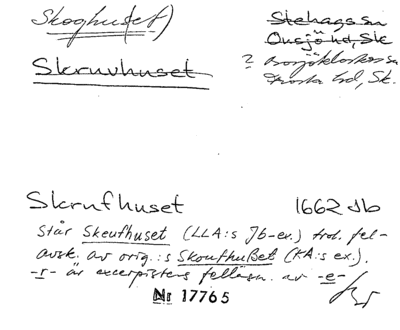 Skoghuset)
Skruvhuset
Stehags sn
Onsjö hd, Sk
? Bosjöklosters sn
Frosta hd, Sk.
Skrufhuset 1662 Jb
Står Skeufhuset (LLA:s Jb-ex.) trol. fel-
avskr. av orig.:s Skoufhußet (KA:s ex.).
-r- är excerpistens felläsn. av -e-
Nr 17765